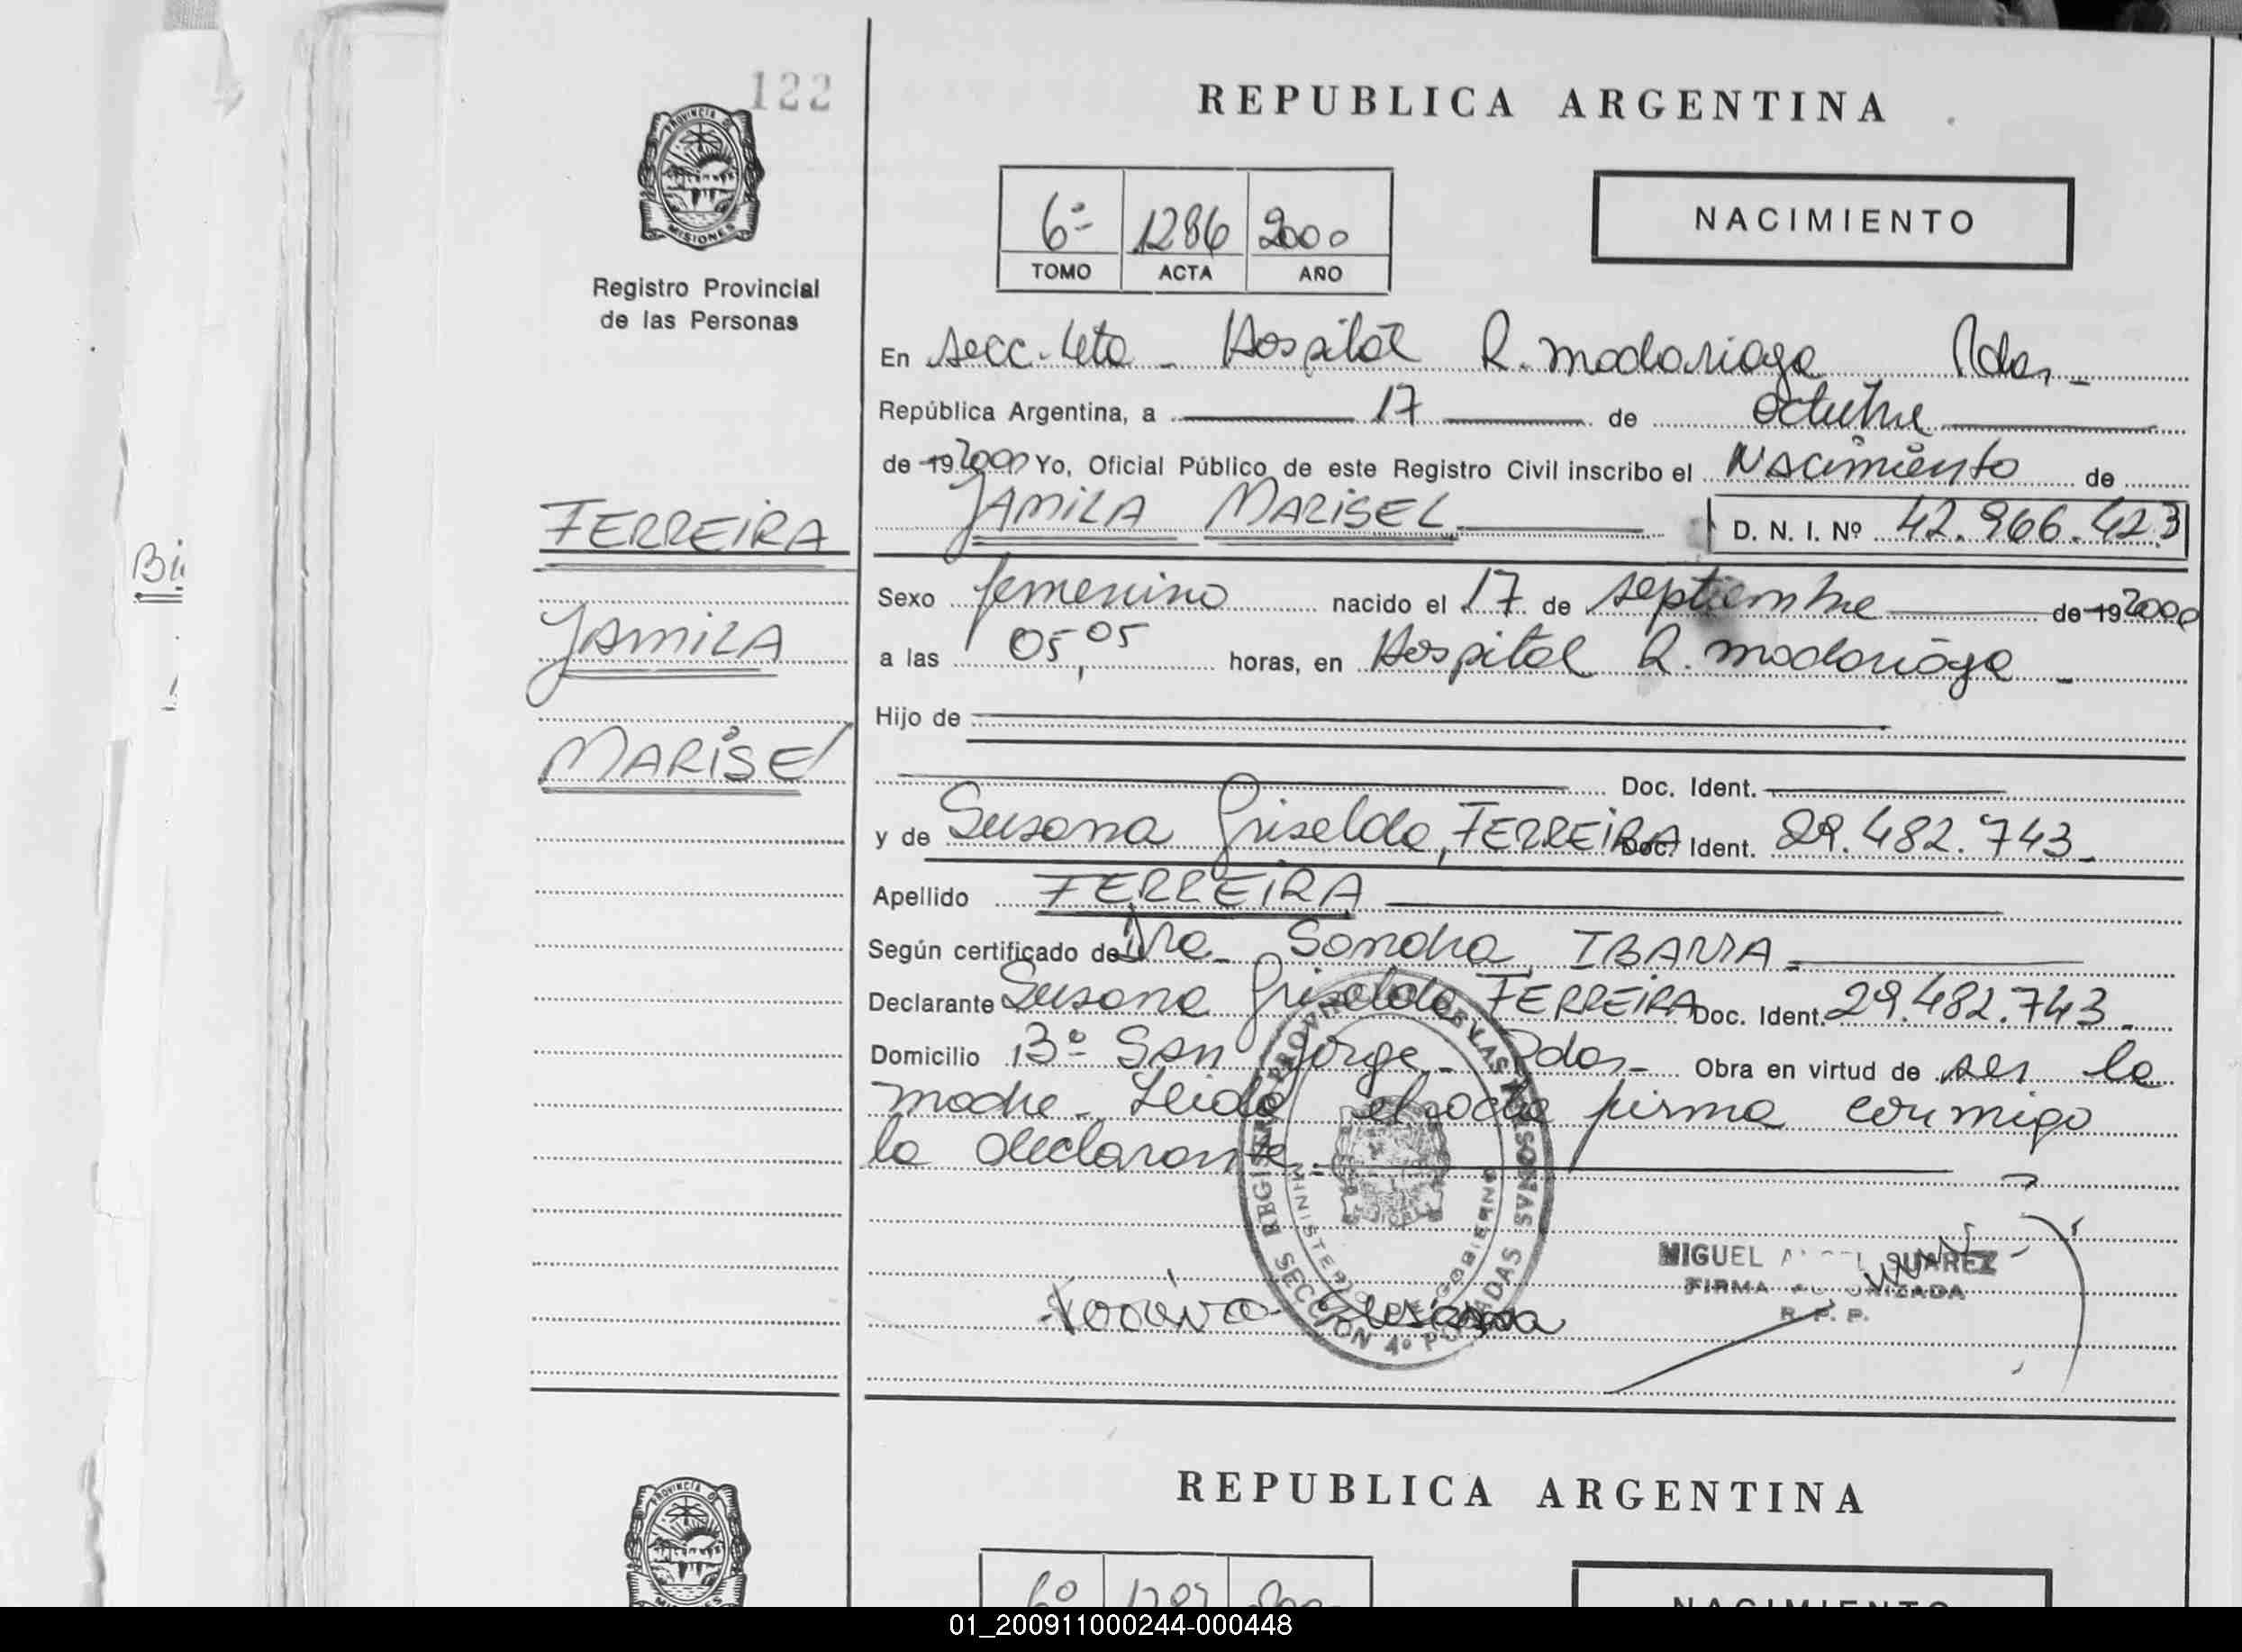 122
PROVINCIA DE
MISIONES
Registro Provincial
de las Personas
REPUBLICA ARGENTINA
6º 1286 2000
TOMO ACTA AÑO
NACIMIENTO
En Secc. 4ta - Hospital R. Madariaga Pdas -
República Argentina, a 17 de octubre
de 19 2000 Yo, Oficial Público de este Registro Civil inscribo el Nacimiento de
JAMILA MARISEL D. N. I. Nº 42.966.423
FERREIRA
JAMILA
MARISEL
Sexo femenino nacido el 17 de septiembre de 19 2000
a las 05,05 horas, en Hospital R. Madariaga -
Hijo de
Doc. Ident.
y de Susana Griselda, FERREIRA Doc. Ident. 29.482.743 -
Apellido FERREIRA
Según certificado de Dra. Sandra IBARRA -
Declarante Susana Griselda FERREIRA Doc. Ident. 29.482.743 -
Domicilio Bº San Jorge - Pdas - Obra en virtud de ser la
madre - Leida el acta firma conmigo
la declarante -
REGISTRO PROVINCIAL DE LAS PERSONAS
MINISTERIO DE GOBIERNO
SECCION 4º POSADAS
Susana
MIGUEL SUAREZ
FIRMA AUTORIZADA
R. P. P.
Bi
PROVINCIA DE
MISIONES
REPUBLICA ARGENTINA
6º 1287 2000
NACIMIENTO
01_200911000244-000448